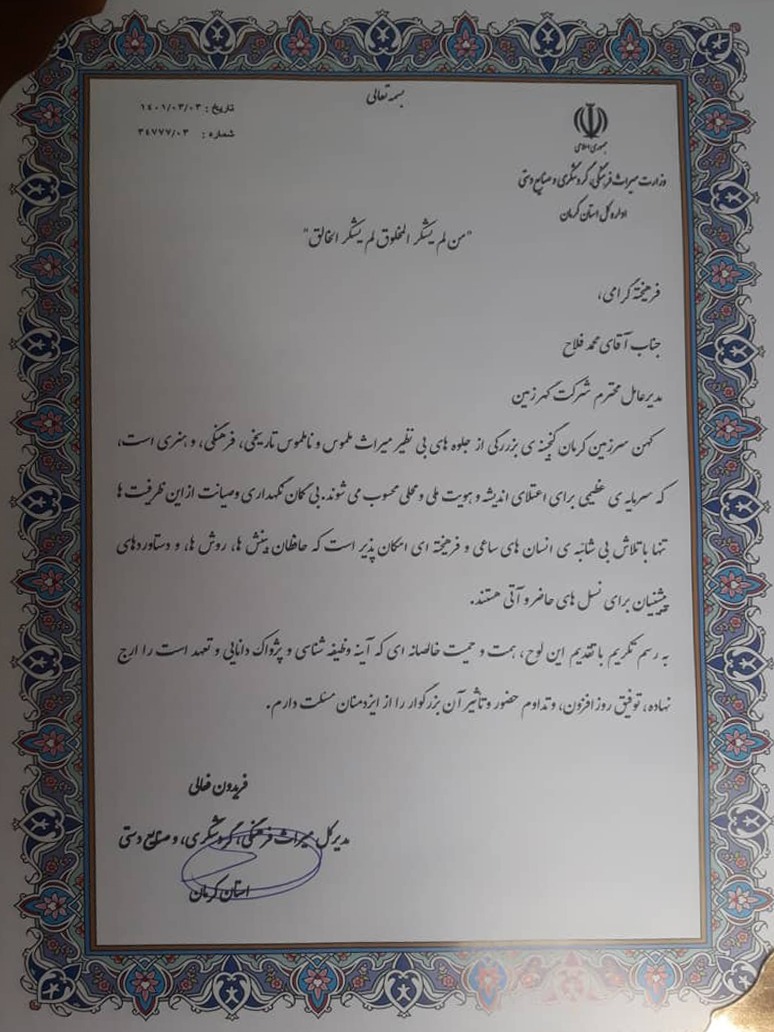 بسمه تعالی
تاریخ : ۱۴۰۱/۰۳/۰۳
شماره : ۳۴۷۷۷/۰۳
جمهوری اسلامی
وزارت میراث فرهنگی، گردشگری و صنایع دستی
اداره کل استان کرمان
"من لم یشکر المخلوق لم یشکر الخالق"
فرهیخته گرامی،
جناب آقای محمد فلاح
مدیرعامل محترم شرکت گهرزمین
کهن سرزمین کرمان گنجینه ی بزرگی از جلوه های بی نظیر میراث ملموس و ناملموس تاریخی، فرهنگی، و هنری است،
که سرمایه ی عظیمی برای اعتلای اندیشه و هویت ملی و محلی محسوب می شوند. بی گمان نگهداری وصیانت از این ظرفت ها
تنها با تلاش بی شائبه ی انسان های ساعی و فرهیخته ای امکان پذیر است که حافظان بینش ها، روش ها، و دستاوردهای
پیشنیان برای نسل های حاضر و آتی هستند.
به رسم تکریم با تقدیم این لوح، همت و حمیت خالصانه ای که آینه وظیفه شناسی و پژواک دانایی و تعهد است را ارج
نهاده، توفیق روز افزون، و تداوم حضور و تاثیر آن بزرگوار را از ایزدمنان مسئلت دارم.
فریدون فعالی
مدیرکل میراث فرهنگی، گردشگری، و صنایع دستی
استان کرمان